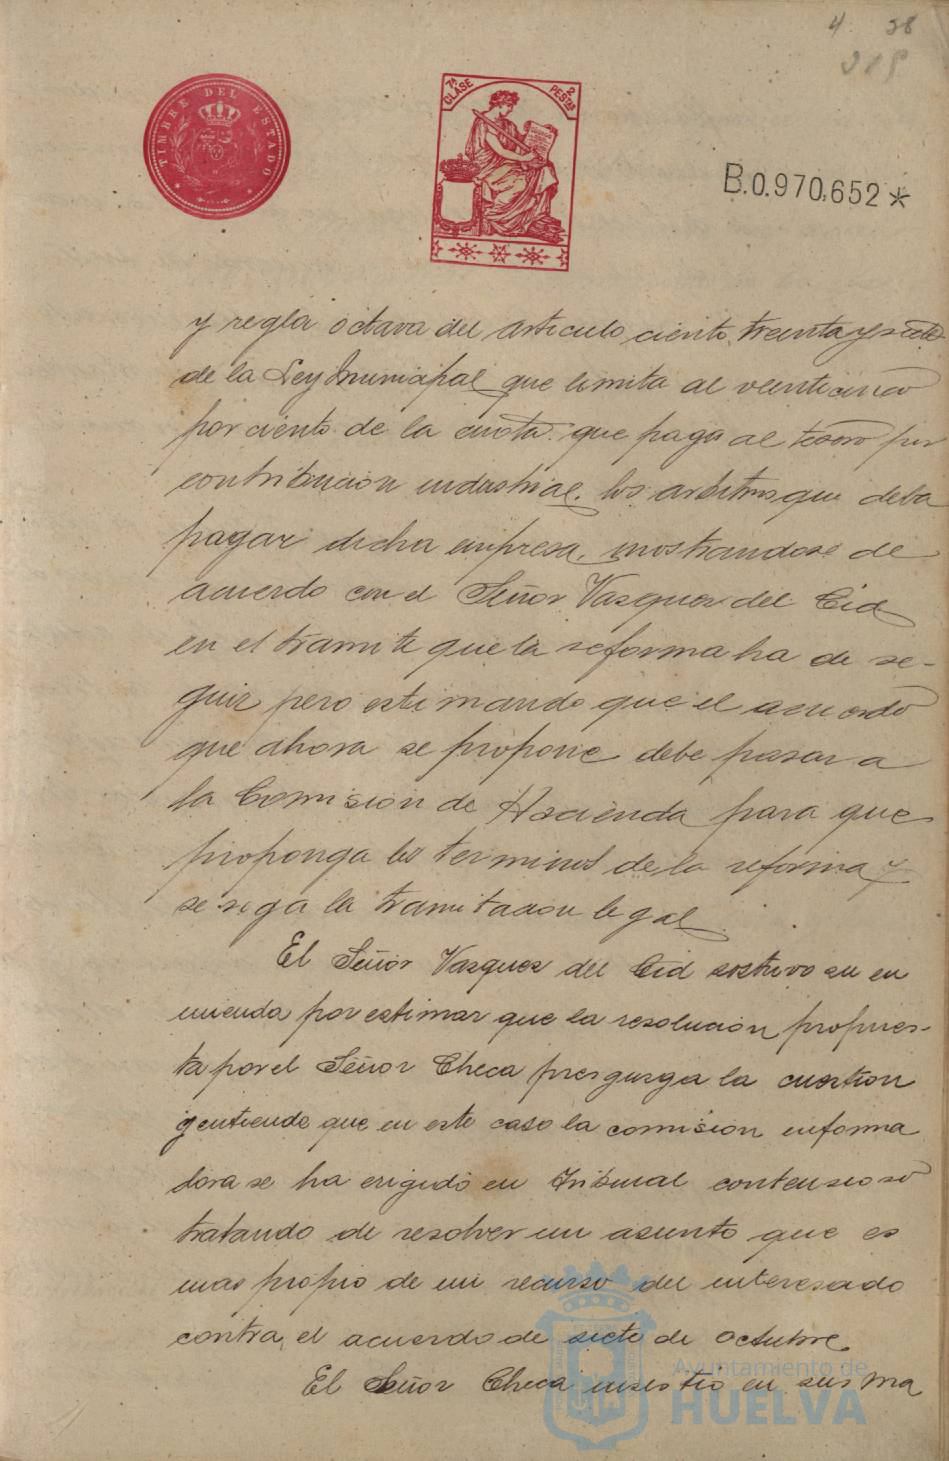 4 38
TIMBRE DEL ESTADO
7ª CLASE 2 PESTAS
B.0.970,652*
y regla octava del articulo ciento treinta y siete
de la Ley Municipal que limita al veinticinco
por ciento de la cuota que paga al tesoro por
contribucion industrial los arbitrios que deba
pagar dicha empresa, mostrandose de
acuerdo con el Señor Vazquez del Cid
en el tramite que la reforma ha de se-
guir pero estimando que el acuerdo
que ahora se propone debe pasar a
la Comision de Hacienda para que
proponga los terminos de la reforma y
se siga la tramitacion legal
El Señor Vazquez del Cid sostuvo su en
mienda por estimar que la resolucion propues-
ta por el Señor Checa prejuzga la cuestion
y entiende que en este caso la comision informa
dora se ha erigido en Tribunal contencioso
tratando de resolver un asunto que es
mas propio de un recurso del interesado
contra el acuerdo de siete de octubre
El Señor Checa insistio en sus ma
Ayuntamiento de
HUELVA